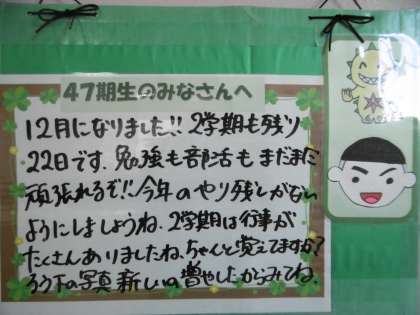 47期生のみなさんへ
12月になりました!! 2学期も残り
22日です。勉強も部活もまだまだ
頑張れるぞ!! 今年のやり残しがない
ようにしましょうね。2学期は行事が
たくさんありましたね。ちゃんと覚えてますか?
ろう下の写真新しいの増やしたからみてね。